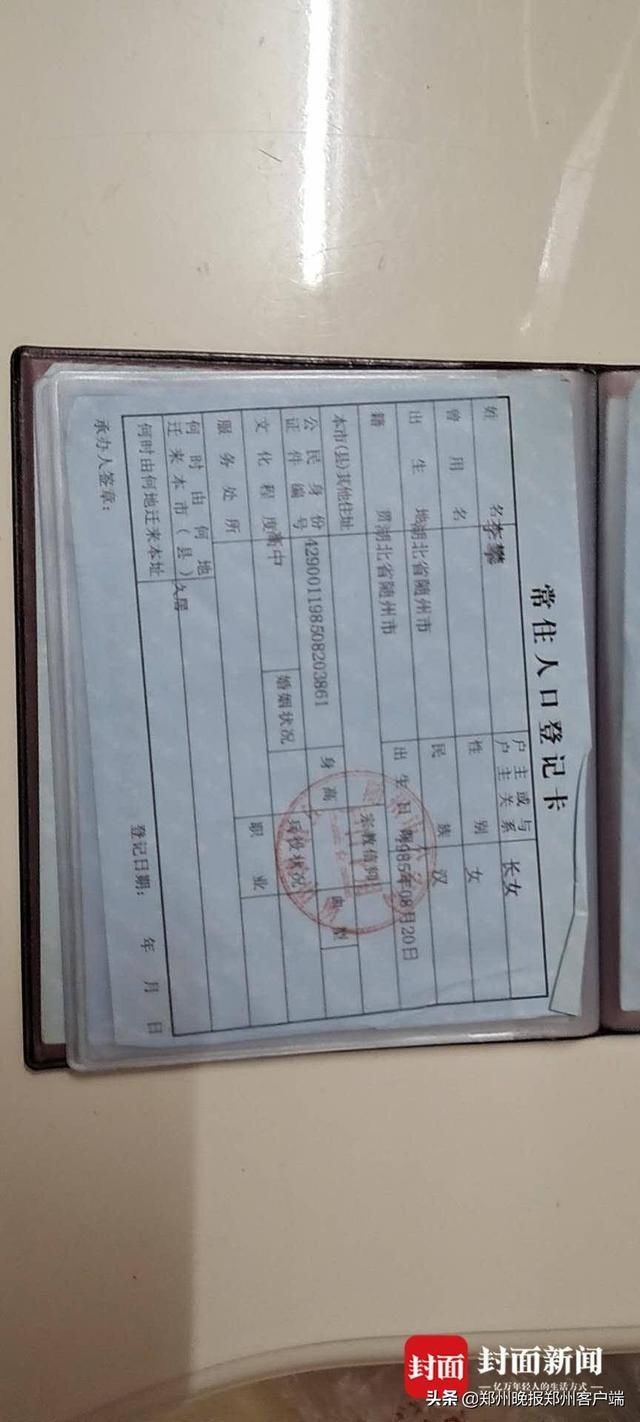 常住人口登记卡
姓名 李攀 户主或与户主关系 长女
曾用名 性别 女
出生地 湖北省随州市 民族 汉
籍贯 湖北省随州市 出生日期 1985年08月20日
本市(县)其他住址 宗教信仰
公民身份证件编号 429001198508203861 身高 血型
文化程度 高中 婚姻状况 兵役状况
服务处所 职业
何时由何地迁来本市(县) 久居
何时由何地迁来本址
承办人签章: 登记日期: 年 月 日
封面 封面新闻
亿万年轻人的生活方式
头条 @郑州晚报郑州客户端